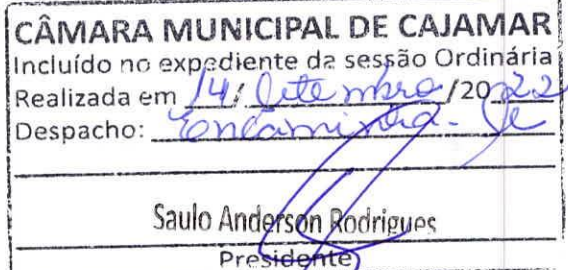 CÂMARA MUNICIPAL DE CAJAMAR
Incluído no expediente da sessão Ordinária
Realizada em 14/ Setembro /2022
Despacho: Encaminha-se
Saulo Anderson Rodrigues
Presidente